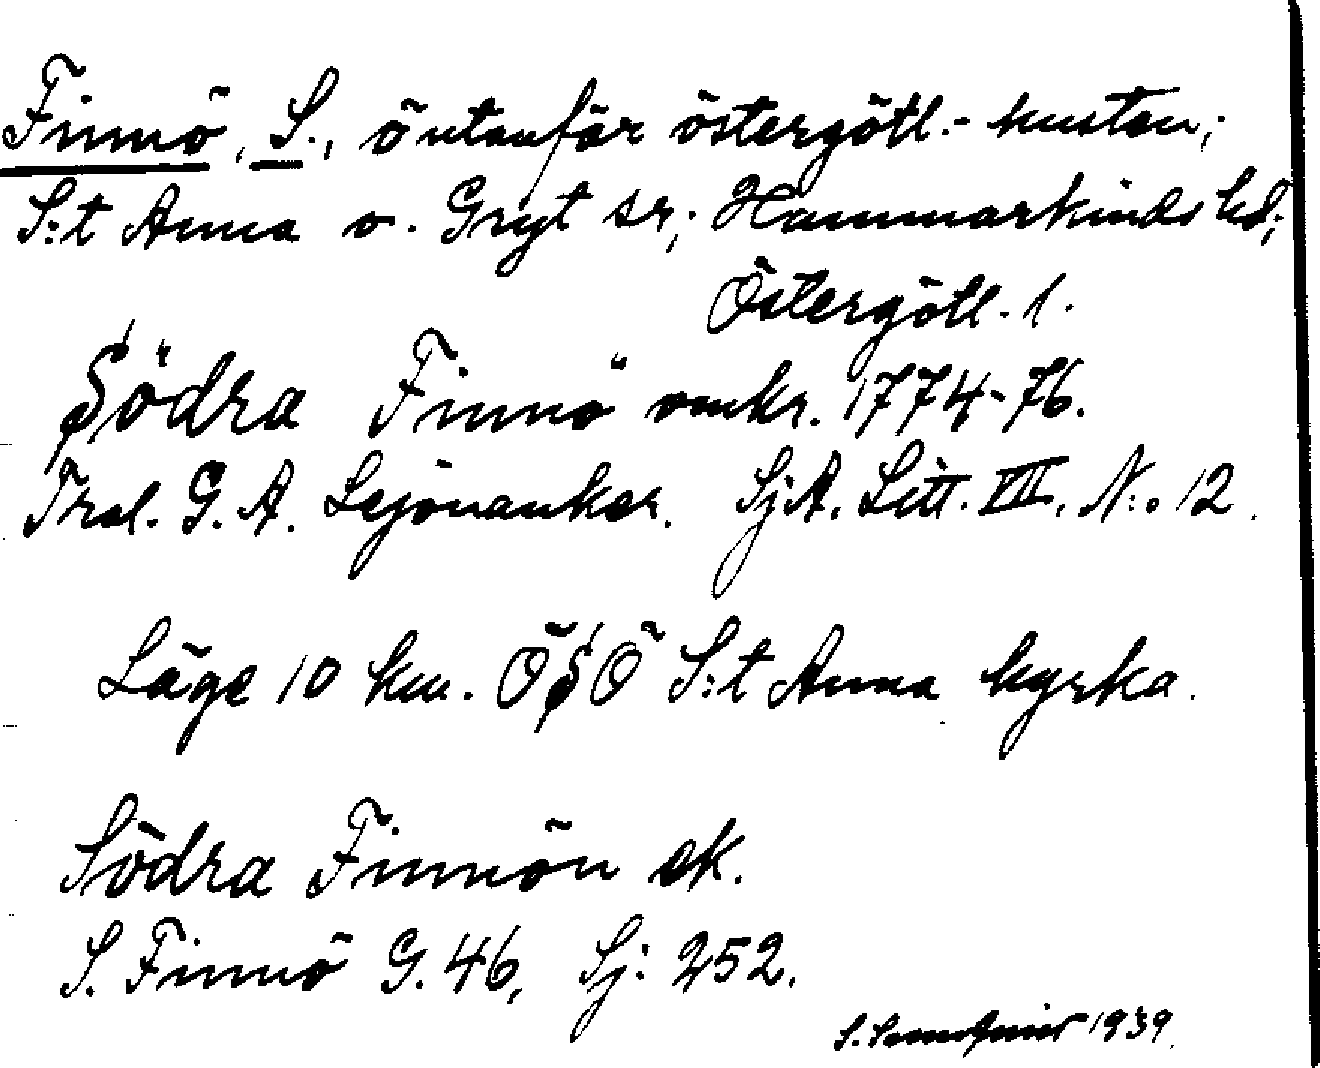 Finnö, S., ö utanför östergötl.- kusten;
S:t Anna o. Gryt sr; Hammarkinds hd;
Östergötl. l.
Södra Finnö omkr. 1774-76.
Trol. G. A. Lejonankar. SjA. Litt. VII. N:o 12.
Läge 10 km. ÖSÖ S:t Anna kyrka.
Södra Finnön ek.
S. Finnö G. 46, Sj: 252.
S. 1939.